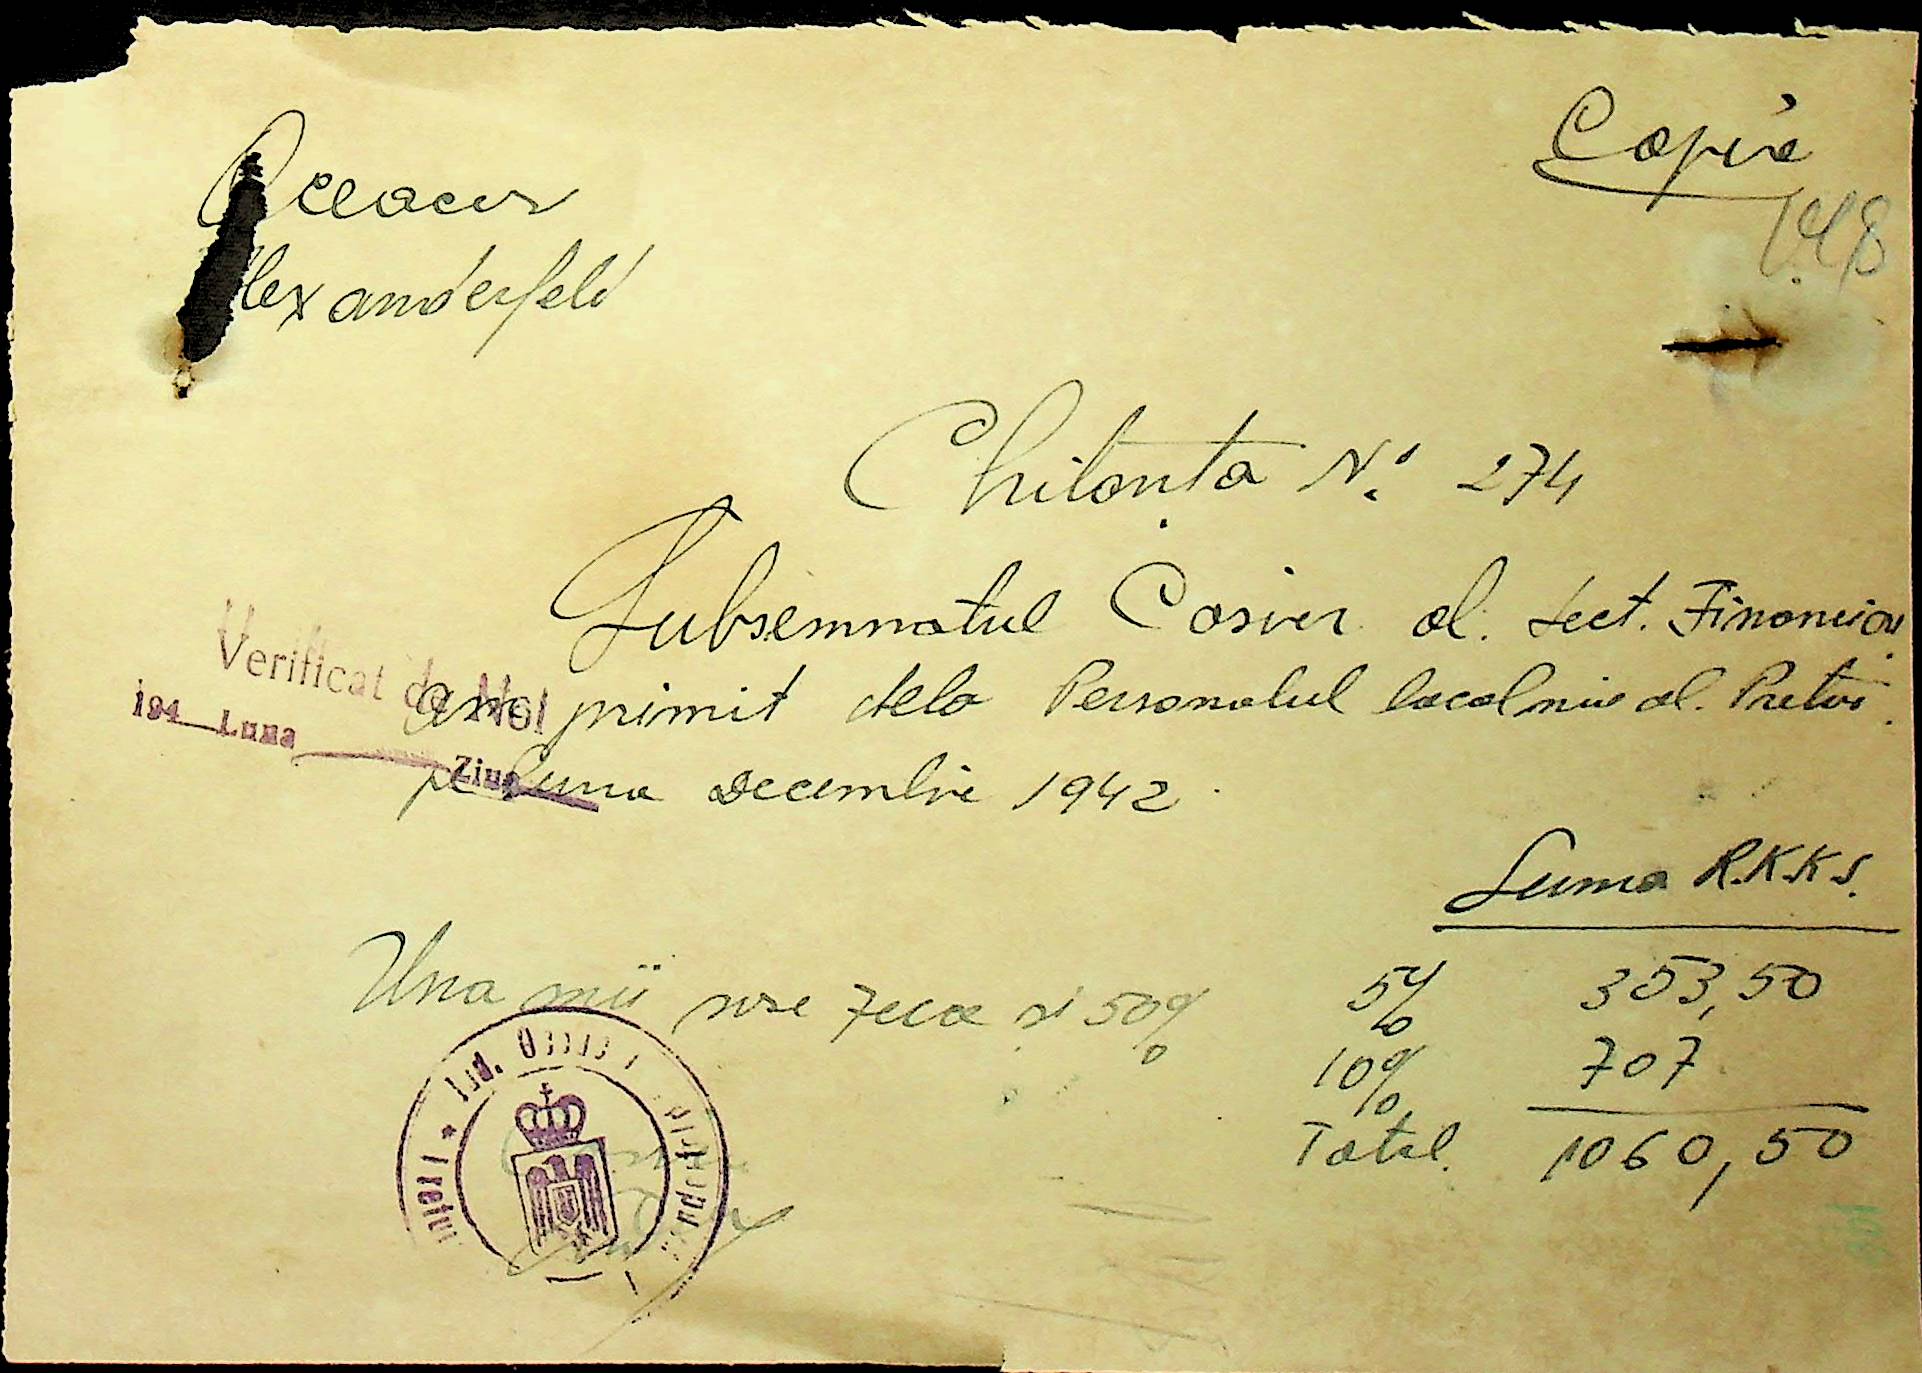 Copie
148
Oceacov
Alexanderfeld
Chitanta No. 274
Subsemnatul Casier al. Sect. Financiar
am primit dela Personalul localnic al. Pretur.
pe luna Decembrie 1942.
Verificat de Noi
194 Luna Ziua
Suma R.K.K.S.
5% 353,50
Una mii șase zece și 50%
10% 707
Total. 1060,50